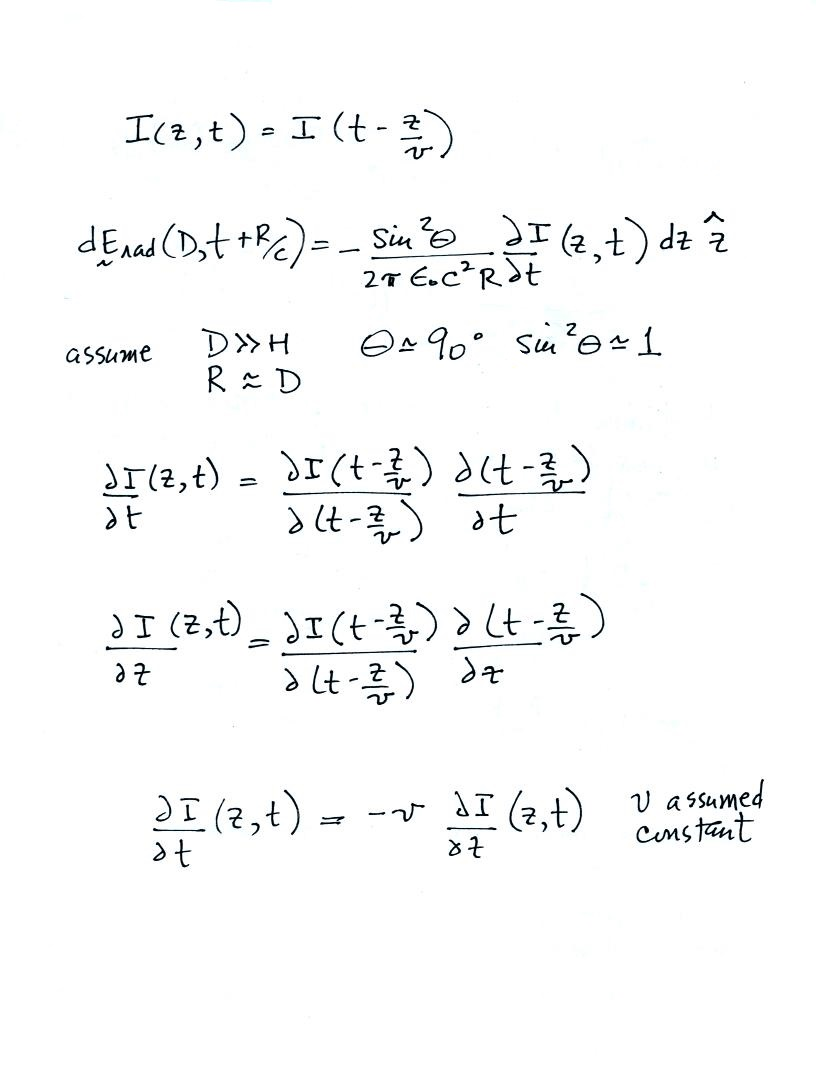 I(z,t) = I(t - z/v)
dE_rad(D, t + R/c) = - sin²θ / 2π ε₀ c² R ∂I/∂t (z,t) dz ẑ
assume D >> H θ ≃ 90° sin²θ ≃ 1
R ≈ D
∂I/∂t (z,t) = ∂I(t - z/v) / ∂(t - z/v) ∂(t - z/v) / ∂t
∂I/∂z (z,t) = ∂I(t - z/v) / ∂(t - z/v) ∂(t - z/v) / ∂z
∂I/∂t (z,t) = -v ∂I/∂z (z,t) v assumed
constant